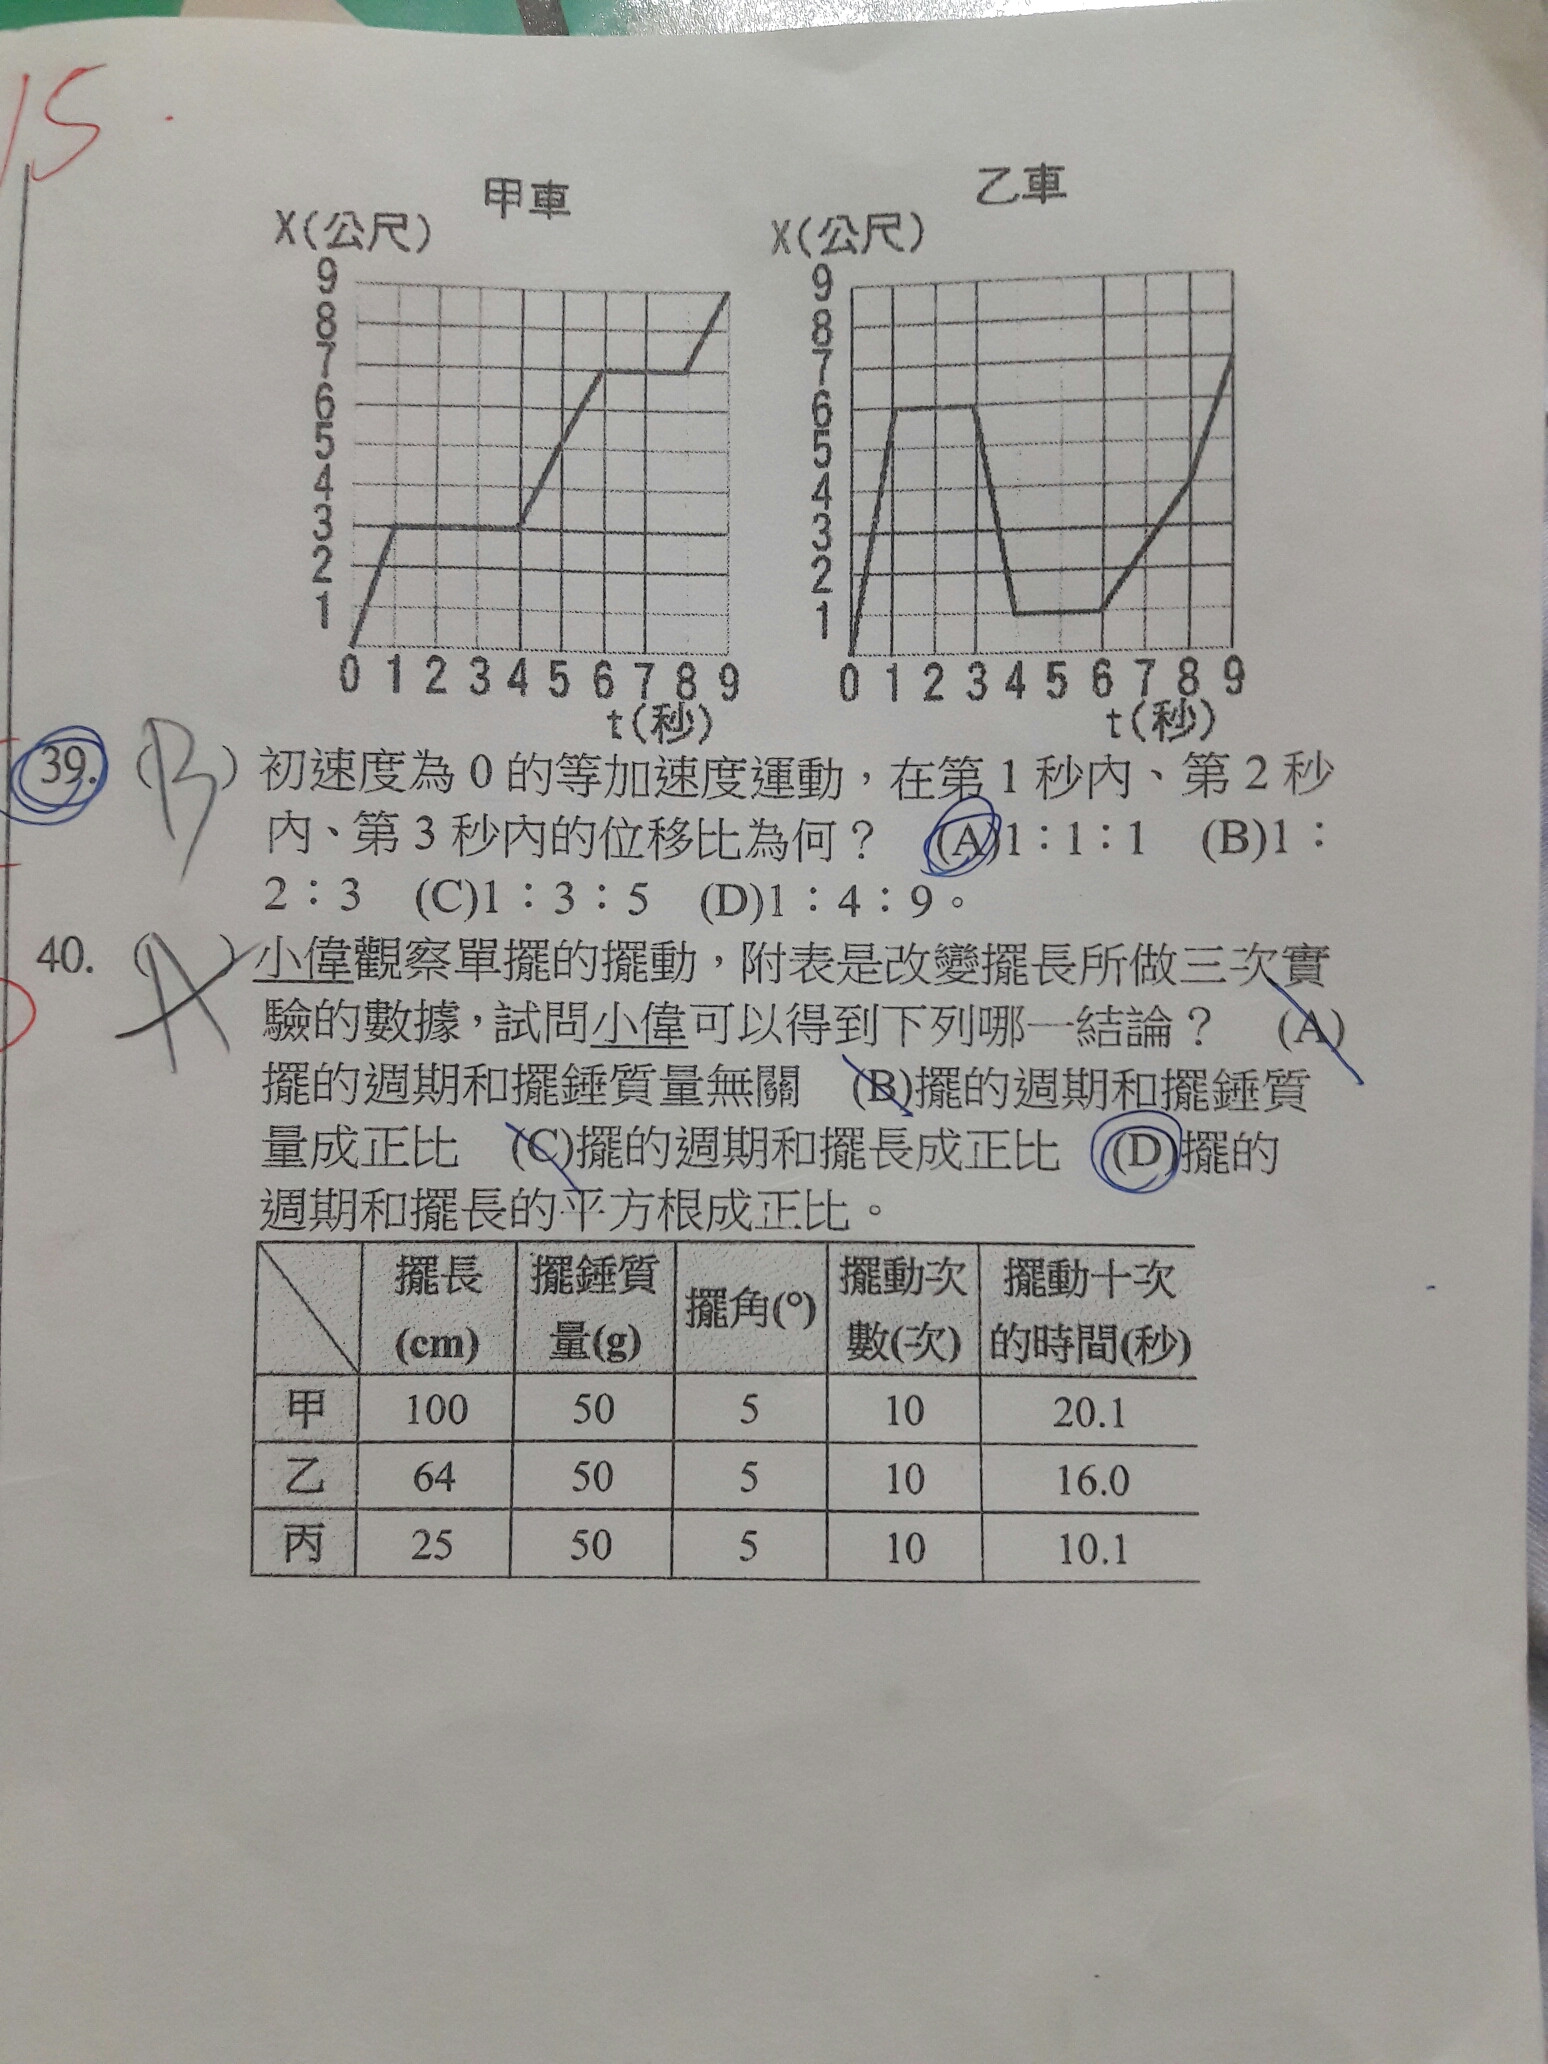 15.
甲車 乙車
X(公尺) X(公尺)
9 9
8 8
7 7
6 6
5 5
4 4
3 3
2 2
1 1
0 1 2 3 4 5 6 7 8 9 0 1 2 3 4 5 6 7 8 9
t(秒) t(秒)
39. (B)初速度為 0 的等加速度運動，在第 1 秒內、第 2 秒
內、第 3 秒內的位移比為何？ (A)1：1：1 (B)1：
2：3 (C)1：3：5 (D)1：4：9。
40. (A)小偉觀察單擺的擺動，附表是改變擺長所做三次實
驗的數據，試問小偉可以得到下列哪一結論？ (A)
擺的週期和擺錘質量無關 (B)擺的週期和擺錘質
量成正比 (C)擺的週期和擺長成正比 (D)擺的
週期和擺長的平方根成正比。
擺長 擺錘質 擺角(°) 擺動次 擺動十次
(cm) 量(g) 數(次) 的時間(秒)
甲 100 50 5 10 20.1
乙 64 50 5 10 16.0
丙 25 50 5 10 10.1